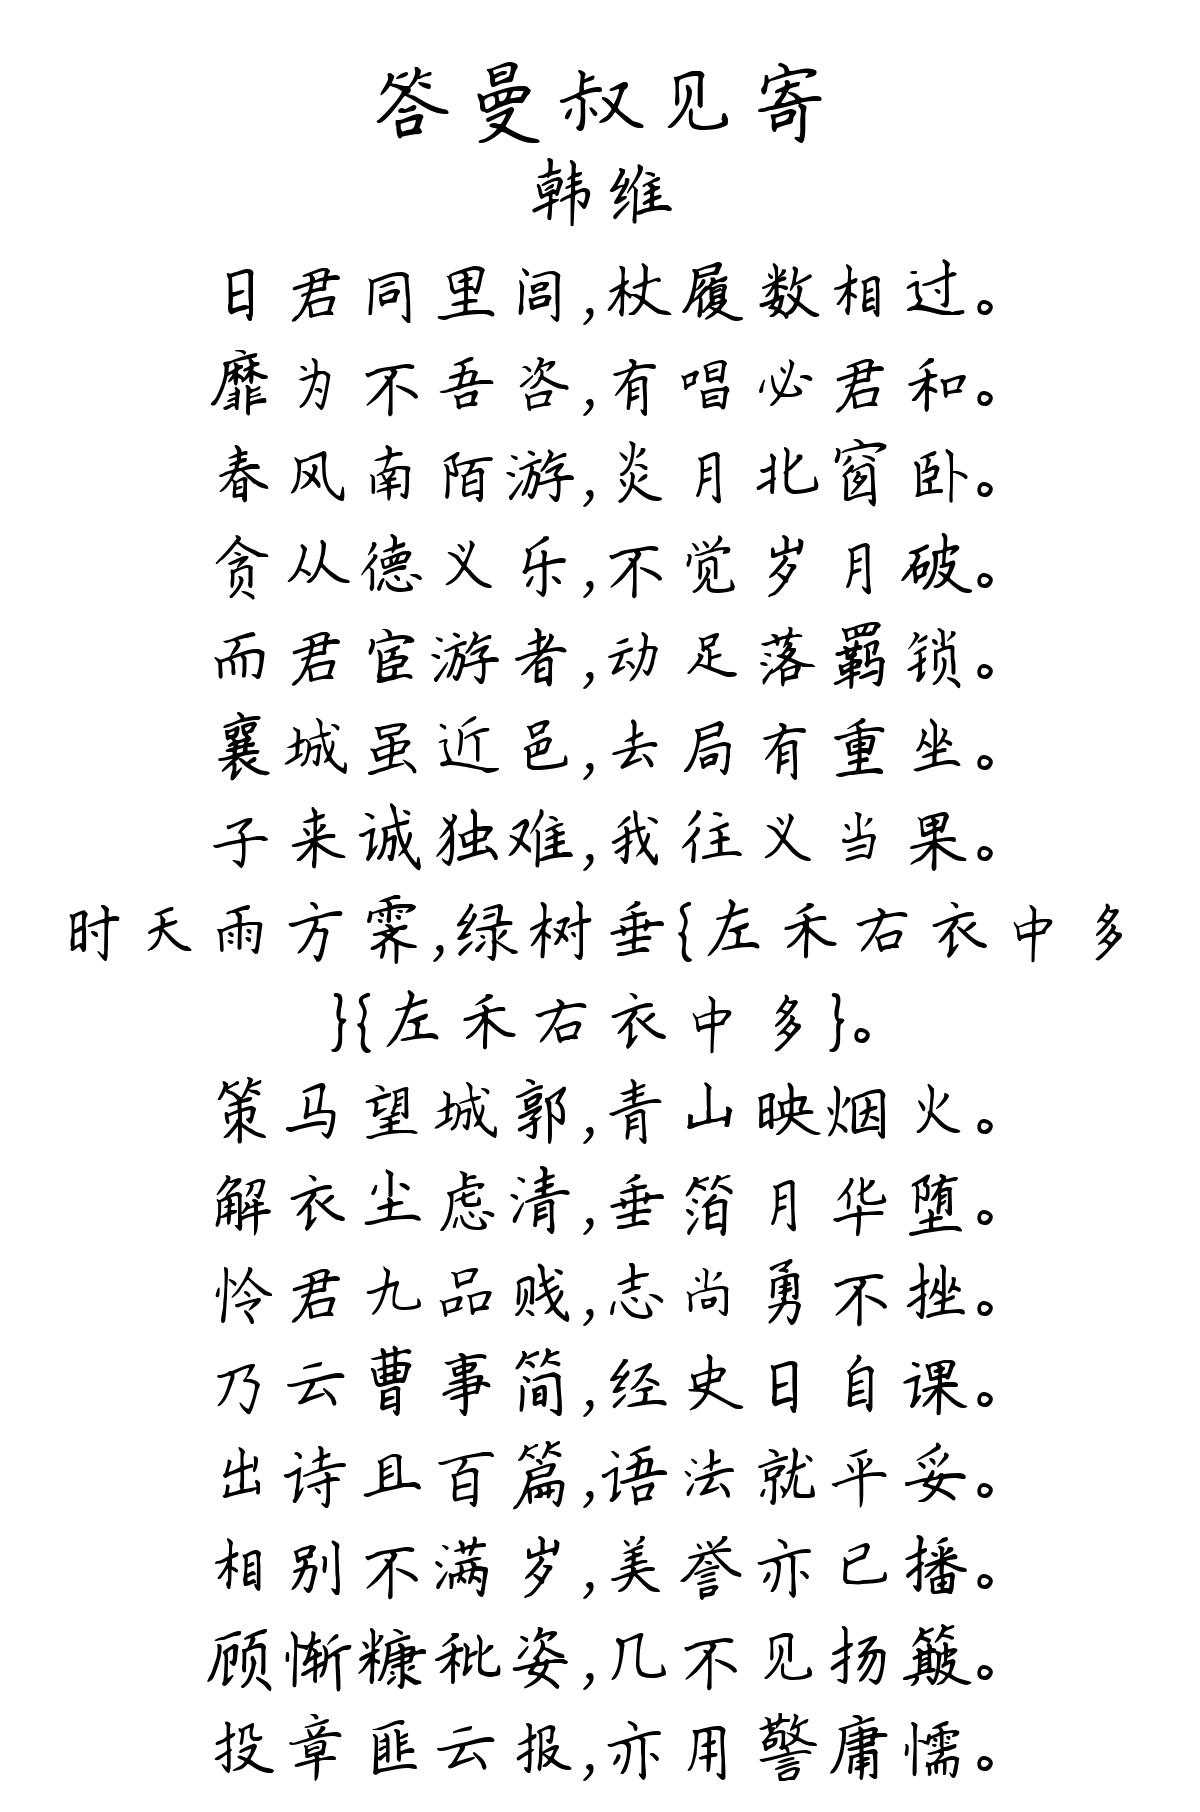 答曼叔见寄
韩维
日君同里闾,杖履数相过。
靡为不吾咨,有唱必君和。
春风南陌游,炎月北窗卧。
贪从德义乐,不觉岁月破。
而君宦游者,动足落羁锁。
襄城虽近邑,去局有重坐。
子来诚独难,我往义当果。
时天雨方霁,绿树垂{左禾右衣中多
}{左禾右衣中多}。
策马望城郭,青山映烟火。
解衣尘虑清,垂箔月华堕。
怜君九品贱,志尚勇不挫。
乃云曹事简,经史日自课。
出诗且百篇,语法就平妥。
相别不满岁,美誉亦已播。
顾惭糠秕姿,几不见扬簸。
投章匪云报,亦用警庸懦。